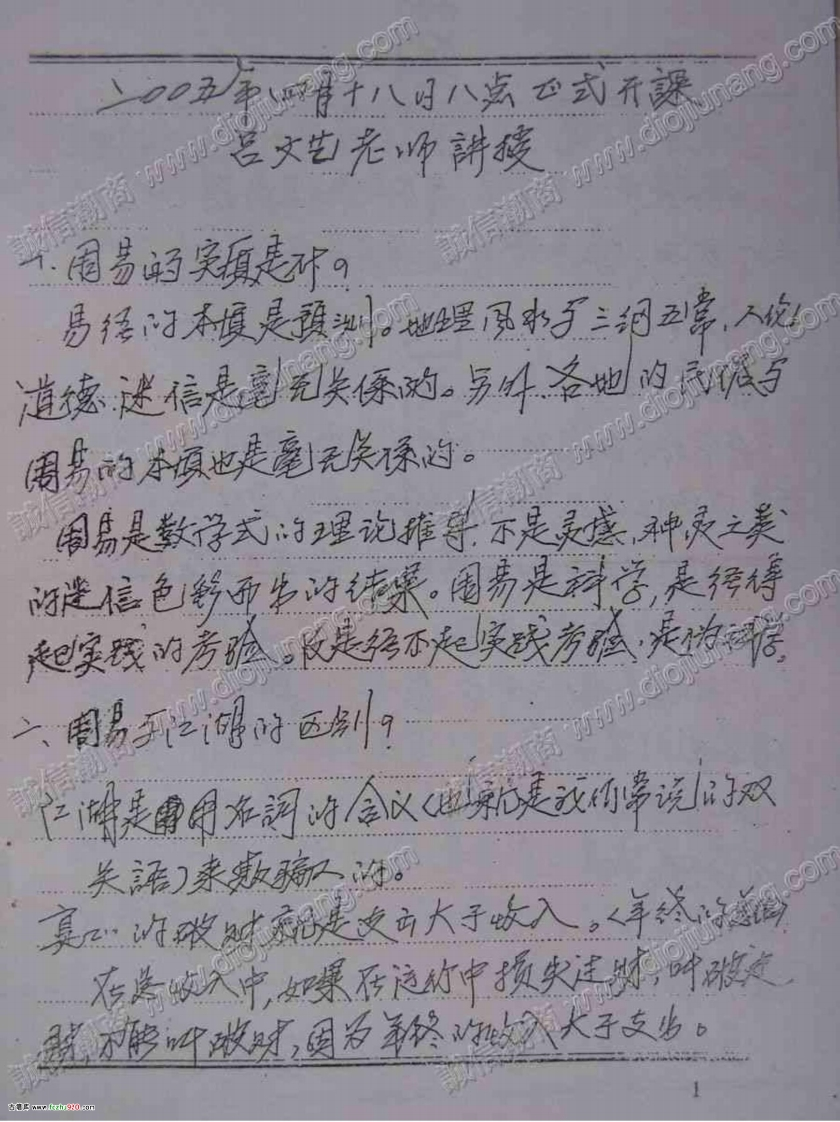 二00五年四月十八日八点正式开課
吕文艺老师講授
一、周易的实质是什？
易经的本质是預測。地理風水与三纲五常，人伦
道德.迷信是毫无关係的。另外.各地的民俗与
周易的本质也是毫无关係的。
周易是数学式的理论推导.不是灵感.神灵之类
的迷信色彩而出的结果。周易是科学，是经得
起实践的考验。反是经不起实践考验，是伪科学。
二、周易与江湖的区别？
江湖是用名詞的含义（也就是我们常说的双
关語）来欺骗人的。
真正的破财就是支出大于收入。（年终的
在总收入中，如果在运作中损失建财，叫破建
财，不能叫破财，因为年终的收入大于支出。
1
誠信潮商 www.diojiunang.com
古書库 www.fczhu920.com